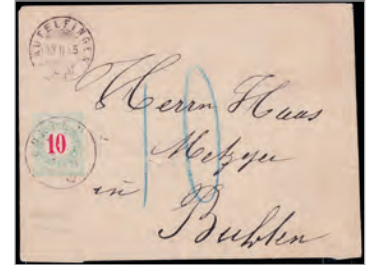 LÄUFELFINGEN
10
10
Herrn Haas
Metzger
in
Buckten